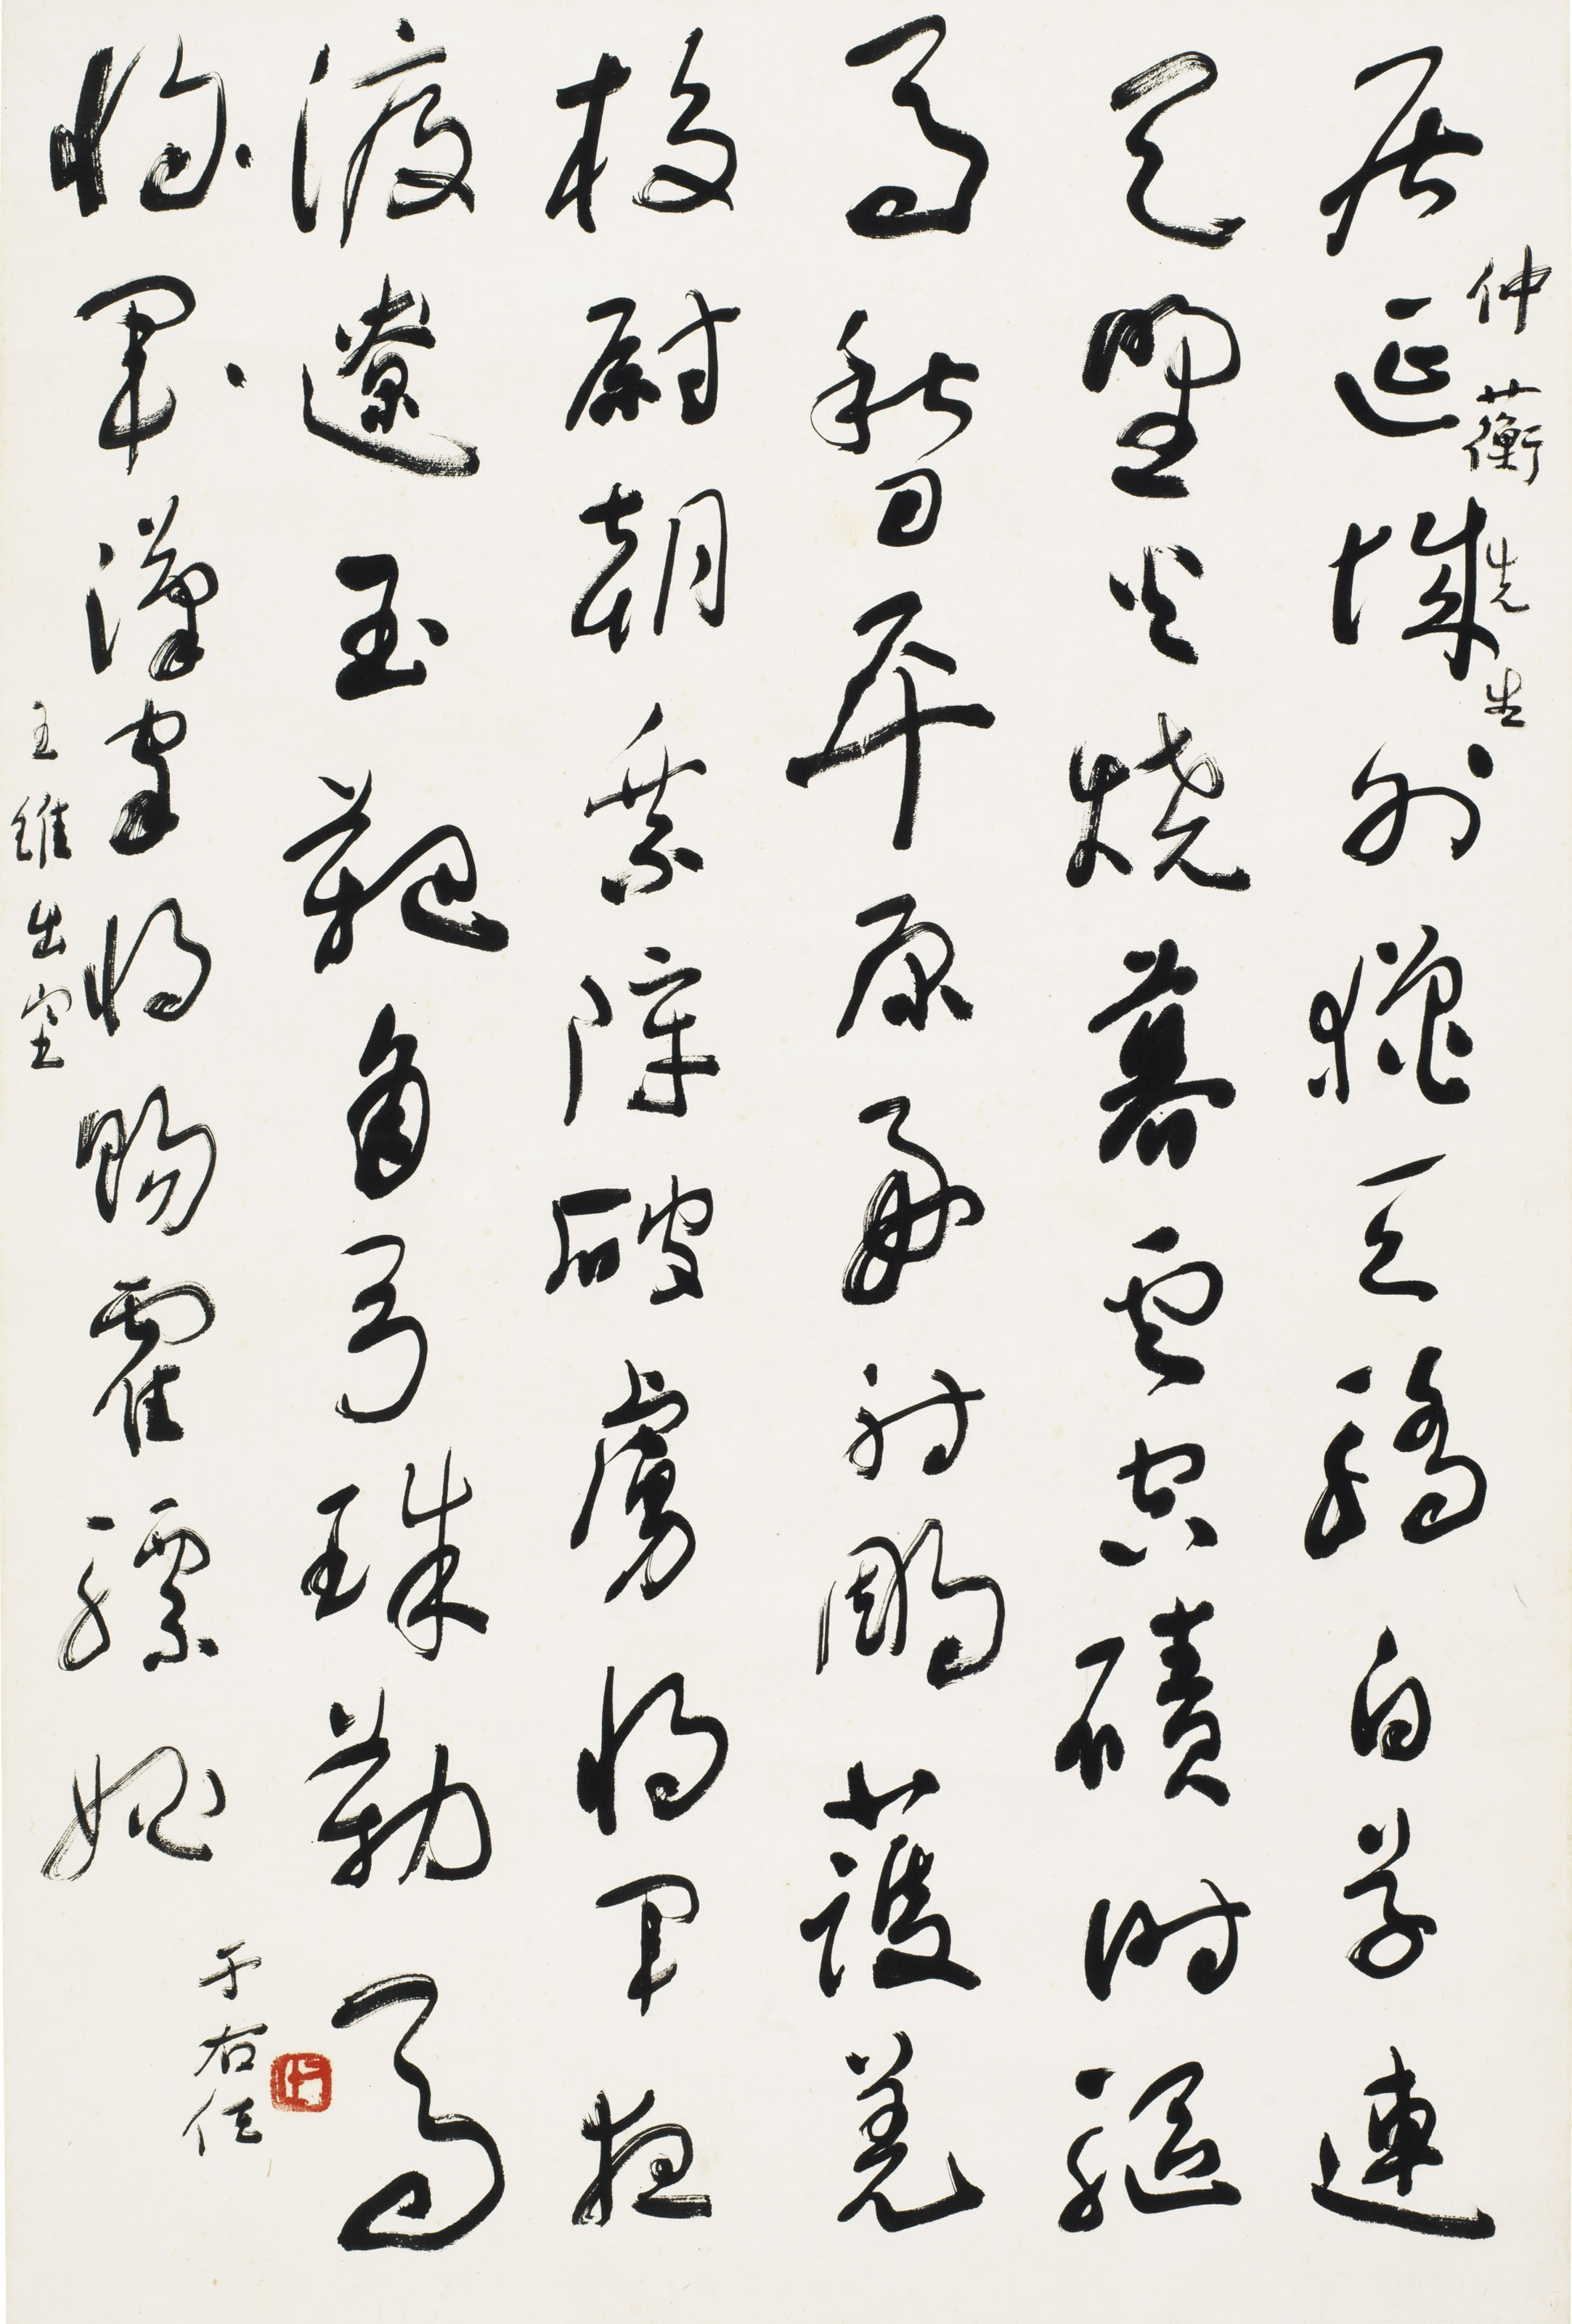 仲蘅先生
居延城外獵天驕白草連
天野火燒暮雲空磧時驅
馬秋日平原好射鵰護羌
校尉朝乘障破虜將軍夜
渡遼玉靶角弓珠勒馬
將軍漢家將賜霍驃姚
王維出塞
于右任
右任